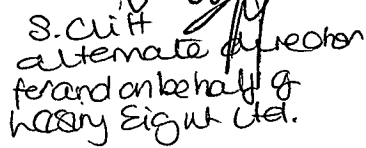 S. Cliff
alternate director
for and on behalf of
Eight Ltd.